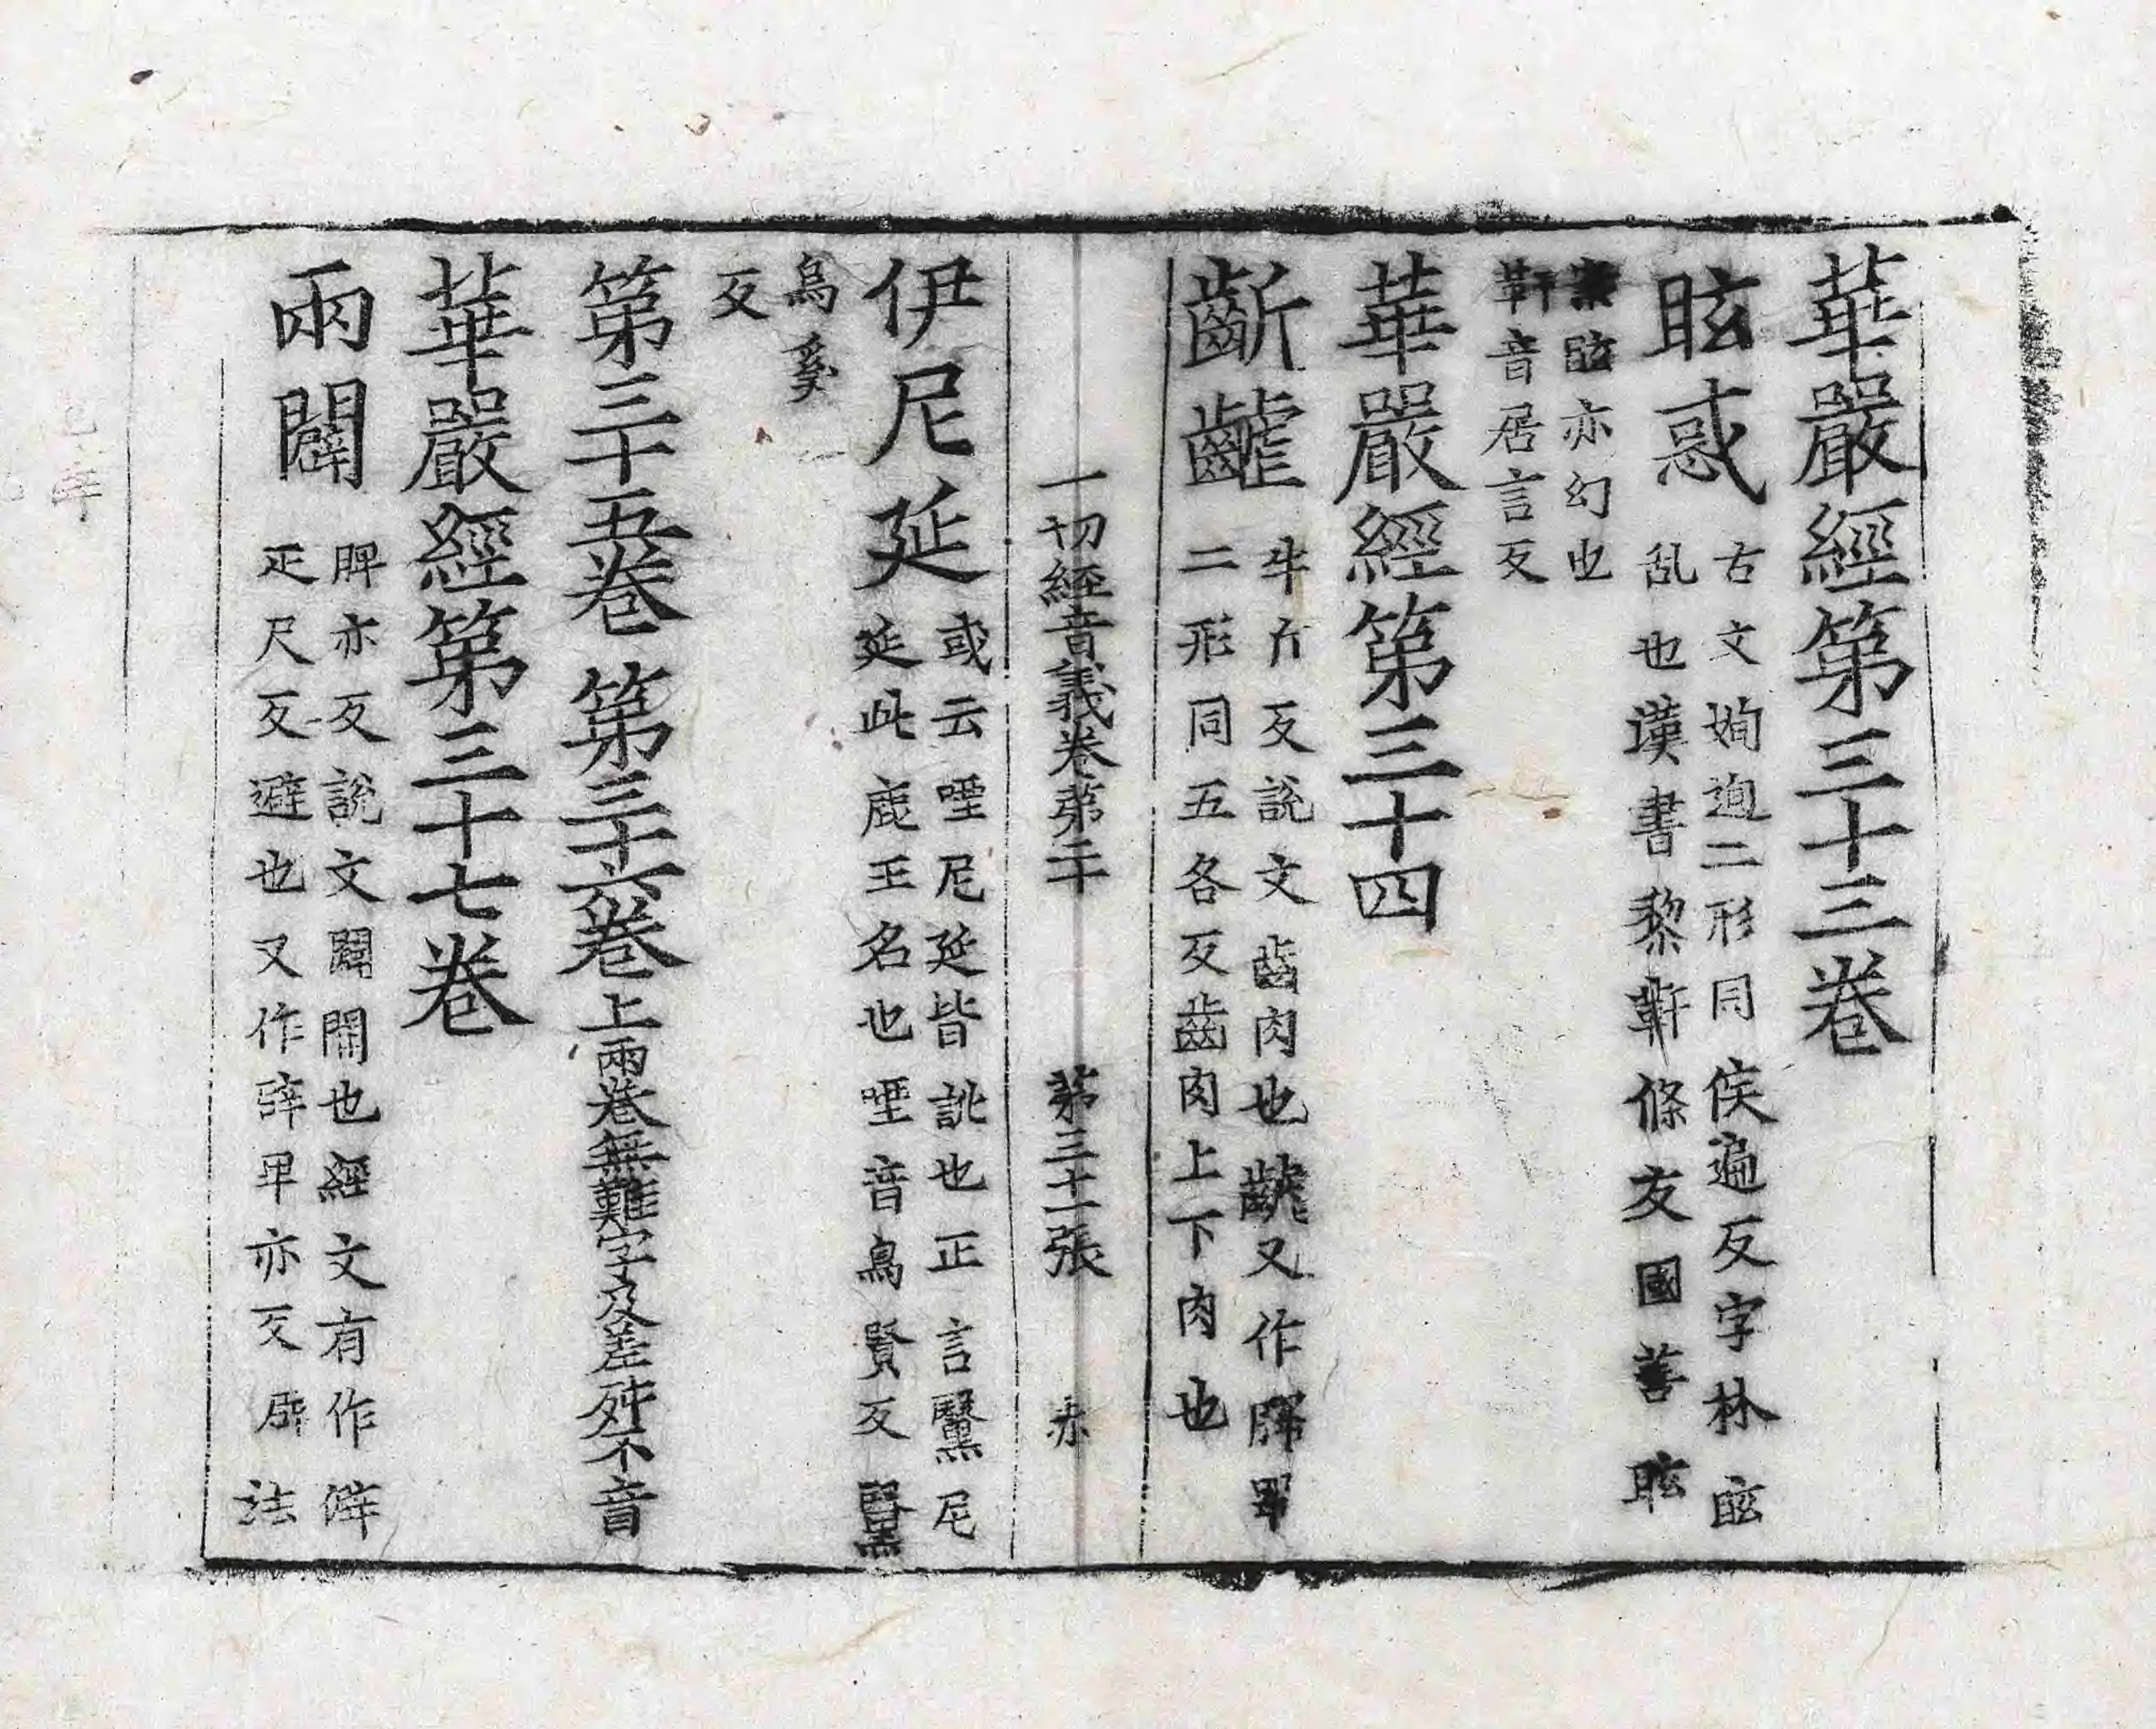 華嚴經第三十三卷
眩惑
古文姰迿二形同侯遍反字林眩
乱也漢書黎軒條友國善眩
案眩亦幻也
軒音居言反
華嚴經第三十四
齗齶
牛斤反說文齒肉也齶又作𠷎
二形同五各反齒肉上下肉也
一切經音義卷第二十 第三十一張 赤
伊尼延
或云㖶尼延皆訛也正言黳尼
延此鹿王名也㖶音烏賢反黳
烏奚
反
第三十五卷 第三十六卷 上兩卷無難字及差殊不音
華嚴經第三十七卷
兩闢
脾亦反說文闢開也經文有作僻
疋尺反避也又作辟卑亦反辟法